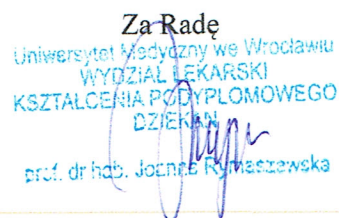 Za Radę
Uniwersytet Medyczny we Wrocławiu
WYDZIAŁ LEKARSKI
KSZTAŁCENIA PODYPLOMOWEGO
DZIEKAN
prof. dr hab. Joanna Rymaszewska